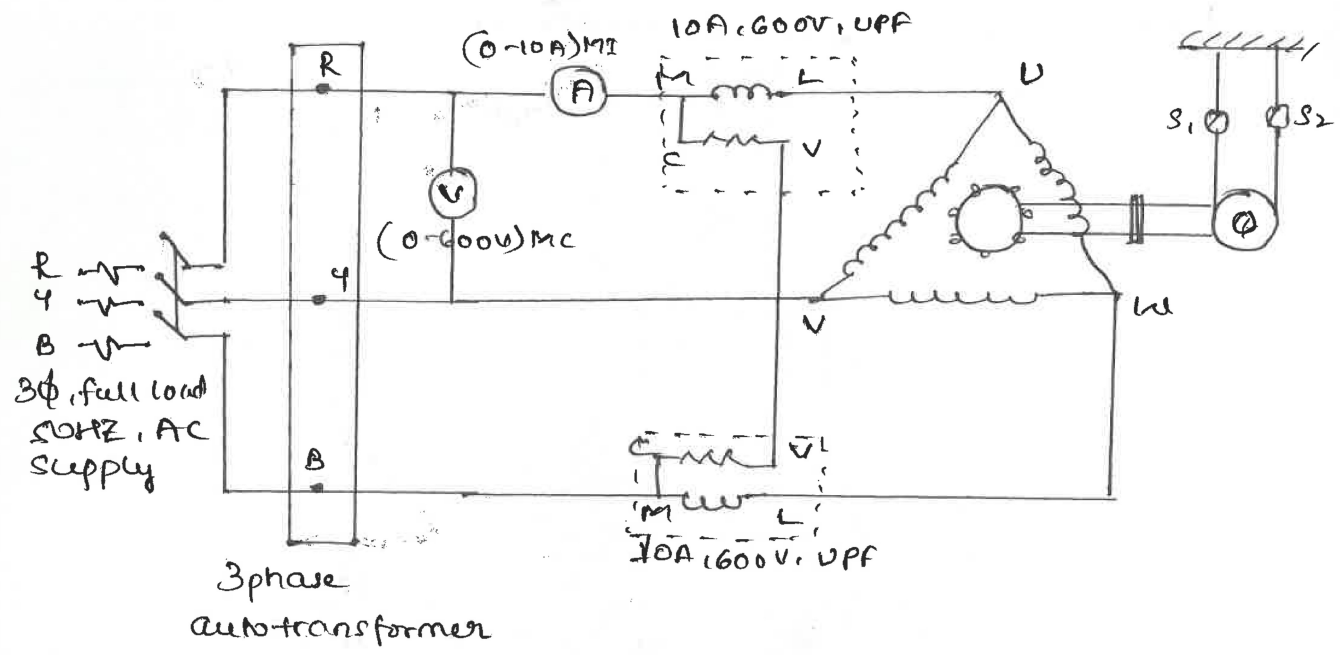 10A, 600V, UPF
(0-10A)MI
R
A
M
L
U
C
V
S1
S2
V
(0-600V)MC
R
Y
B
Y
V
W
3ϕ, full load
50HZ, AC
supply
B
C
V
M
L
10A, 600V, UPF
3phase
autotransformer